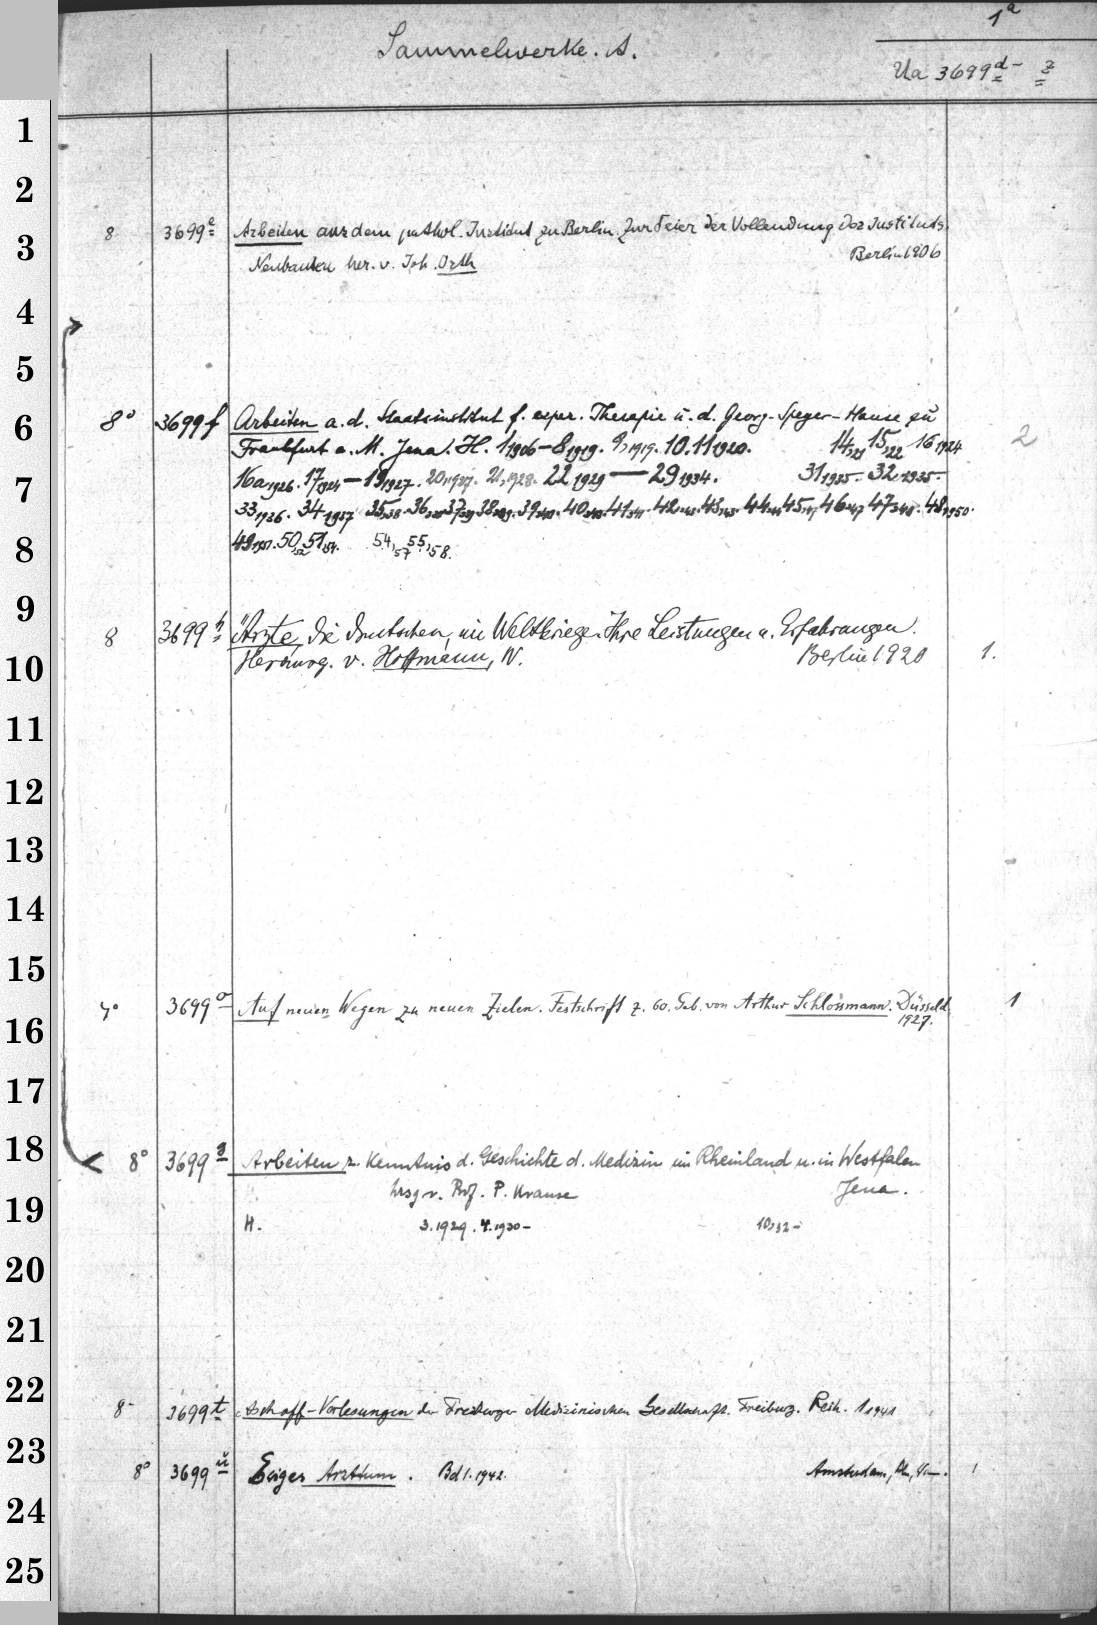 1a
Sammelwerke. A.
Ua 3699 d - z
1
2
3
4
5
6
7
8
9
10
11
12
13
14
15
16
17
18
19
20
21
22
23
24
25
8 3699 e Arbeiten aus dem pathol. Institut zu Berlin. Zur Feier der Vollendung des Instituts
Neubauten her. v. Joh. Orth Berlin 1906
8° 3699 f Arbeiten a. d. Staatsinstitut f. exper. Therapie u. d. Georg-Speyer-Hause zu
Frankfurt a. M. Jena. H. 1 1906 - 8 1919. 9, 1919. 10. 11 1920. 14, 21 15, 22 16 1924 2
16a 1926. 17 1924 - 19 1927. 20, 1927. 21, 1928. 22 1929 - 29 1934. 31 1935. 32 1935.
33 1936. 34 1937 35, 38. 36, 37, 38, 39, 40, 41, 42, 43, 44, 45, 46, 47, 48, 1950.
49 1951. 50, 52 51, 54. 54, 57 55, 58.
8 3699 h Ärzte, Die deutschen, im Weltkriege. Ihre Leistungen u. Erfahrungen.
Herausg. v. Hoffmann, W. Berlin 1920 1.
4° 3699 o Auf neuen Wegen zu neuen Zielen. Festschrift z. 60. Geb. von Arthur Schlossmann. Düsseld. 1
1927.
8° 3699 q Arbeiten z. Kenntnis d. Geschichte d. Medizin im Rheinland u. in Westfalen
hrsg v. Prof. P. Krause Jena.
H. 3. 1929. 4. 1930 - 10, 32 -
8° 3699 t Aschoff-Vorlesungen der Freiburger Medizinischen Gesellschaft. Freiburg. Reih. 1 1941
8° 3699 u Ewiges Arzttum. Bd 1. 1942. Amsterdam, 1